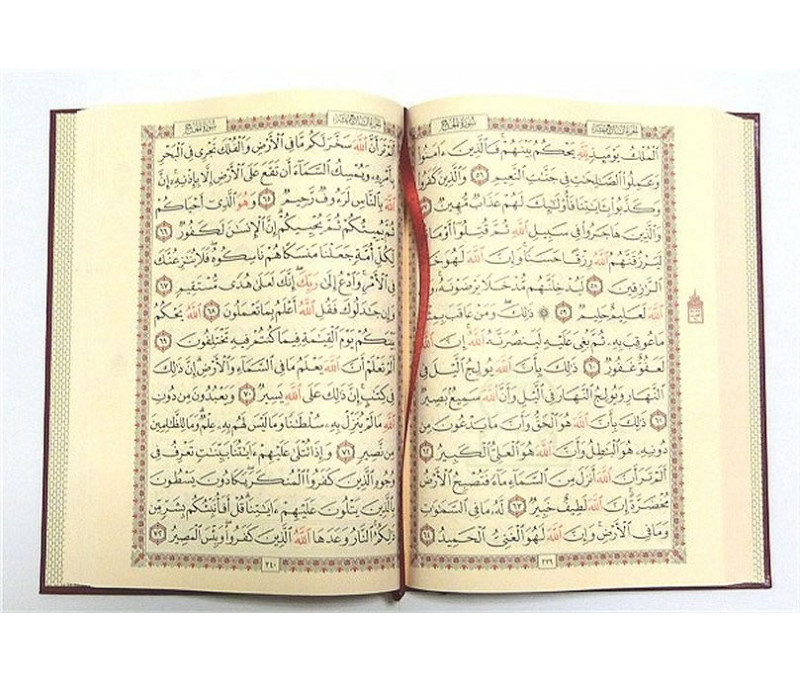 الجزء السابع عشر سُورَةُ الحَجِّ
ٱلْمُلْكُ يَوْمَئِذٍ لِّلَّهِ يَحْكُمُ بَيْنَهُمْ فَٱلَّذِينَ ءَامَنُوا۟
وَعَمِلُوا۟ ٱلصَّٰلِحَٰتِ فِى جَنَّٰتِ ٱلنَّعِيمِ ٥٦ وَٱلَّذِينَ كَفَرُوا۟
وَكَذَّبُوا۟ بِـَٔايَٰتِنَا فَأُو۟لَٰٓئِكَ لَهُمْ عَذَابٌ مُّهِينٌ ٥٧
وَٱلَّذِينَ هَاجَرُوا۟ فِى سَبِيلِ ٱللَّهِ ثُمَّ قُتِلُوٓا۟ أَوْ مَاتُوا۟
لَيَرْزُقَنَّهُمُ ٱللَّهُ رِزْقًا حَسَنًا وَإِنَّ ٱللَّهَ لَهُوَ خَيْرُ
ٱلرَّٰزِقِينَ ٥٨ لَيُدْخِلَنَّهُم مُّدْخَلًا يَرْضَوْنَهُۥ وَإِنَّ
ٱللَّهَ لَعَلِيمٌ حَلِيمٌ ٥٩ ۞ ذَٰلِكَ وَمَنْ عَاقَبَ بِمِثْلِ
مَا عُوقِبَ بِهِۦ ثُمَّ بُغِىَ عَلَيْهِ لَيَنصُرَنَّهُ ٱللَّهُ إِنَّ ٱللَّهَ
لَعَفُوٌّ غَفُورٌ ٦٠ ذَٰلِكَ بِأَنَّ ٱللَّهَ يُولِجُ ٱلَّيْلَ فِى
ٱلنَّهَارِ وَيُولِجُ ٱلنَّهَارَ فِى ٱلَّيْلِ وَأَنَّ ٱللَّهَ سَمِيعٌۢ بَصِيرٌ
٦١ ذَٰلِكَ بِأَنَّ ٱللَّهَ هُوَ ٱلْحَقُّ وَأَنَّ مَا يَدْعُونَ مِن
دُونِهِۦ هُوَ ٱلْبَٰطِلُ وَأَنَّ ٱللَّهَ هُوَ ٱلْعَلِىُّ ٱلْكَبِيرُ ٦٢
أَلَمْ تَرَ أَنَّ ٱللَّهَ أَنزَلَ مِنَ ٱلسَّمَآءِ مَآءً فَتُصْبِحُ ٱلْأَرْضُ
مُخْضَرَّةً إِنَّ ٱللَّهَ لَطِيفٌ خَبِيرٌ ٦٣ لَّهُۥ مَا فِى ٱلسَّمَٰوَٰتِ
وَمَا فِى ٱلْأَرْضِ وَإِنَّ ٱللَّهَ لَهُوَ ٱلْغَنِىُّ ٱلْحَمِيدُ ٦٤
٣٣٩
الجزء السابع عشر سُورَةُ الحَجِّ
أَلَمْ تَرَ أَنَّ ٱللَّهَ سَخَّرَ لَكُم مَّا فِى ٱلْأَرْضِ وَٱلْفُلْكَ تَجْرِى فِى ٱلْبَحْرِ
بِأَمْرِهِۦ وَيُمْسِكُ ٱلسَّمَآءَ أَن تَقَعَ عَلَى ٱلْأَرْضِ إِلَّا بِإِذْنِهِۦٓ إِنَّ
ٱللَّهَ بِٱلنَّاسِ لَرَءُوفٌ رَّحِيمٌ ٦٥ وَهُوَ ٱلَّذِىٓ أَحْيَاكُمْ
ثُمَّ يُمِيتُكُمْ ثُمَّ يُحْيِيكُمْ إِنَّ ٱلْإِنسَٰنَ لَكَفُورٌ ٦٦
لِّكُلِّ أُمَّةٍ جَعَلْنَا مَنسَكًا هُمْ نَاسِكُوهُ فَلَا يُنَٰزِعُنَّكَ
فِى ٱلْأَمْرِ وَٱدْعُ إِلَىٰ رَبِّكَ إِنَّكَ لَعَلَىٰ هُدًى مُّسْتَقِيمٍ ٦٧
وَإِن جَٰدَلُوكَ فَقُلِ ٱللَّهُ أَعْلَمُ بِمَا تَعْمَلُونَ ٦٨ ٱللَّهُ يَحْكُمُ
بَيْنَكُمْ يَوْمَ ٱلْقِيَٰمَةِ فِيمَا كُنتُمْ فِيهِ تَخْتَلِفُونَ ٦٩
أَلَمْ تَعْلَمْ أَنَّ ٱللَّهَ يَعْلَمُ مَا فِى ٱلسَّمَآءِ وَٱلْأَرْضِ إِنَّ ذَٰلِكَ
فِى كِتَٰبٍ إِنَّ ذَٰلِكَ عَلَى ٱللَّهِ يَسِيرٌ ٧٠ وَيَعْبُدُونَ مِن دُونِ
ٱللَّهِ مَا لَمْ يُنَزِّلْ بِهِۦ سُلْطَٰنًا وَمَا لَيْسَ لَهُم بِهِۦ عِلْمٌ وَمَا لِلظَّٰلِمِينَ
مِن نَّصِيرٍ ٧١ وَإِذَا تُتْلَىٰ عَلَيْهِمْ ءَايَٰتُنَا بَيِّنَٰتٍ تَعْرِفُ فِى
وُجُوهِ ٱلَّذِينَ كَفَرُوا۟ ٱلْمُنكَرَ يَكَادُونَ يَسْطُونَ
بِٱلَّذِينَ يَتْلُونَ عَلَيْهِمْ ءَايَٰتِنَا قُلْ أَفَأُنَبِّئُكُم بِشَرٍّ مِّن
ذَٰلِكُمُ ٱلنَّارُ وَعَدَهَا ٱللَّهُ ٱلَّذِينَ كَفَرُوا۟ وَبِئْسَ ٱلْمَصِيرُ ٧٢
٣٤٠